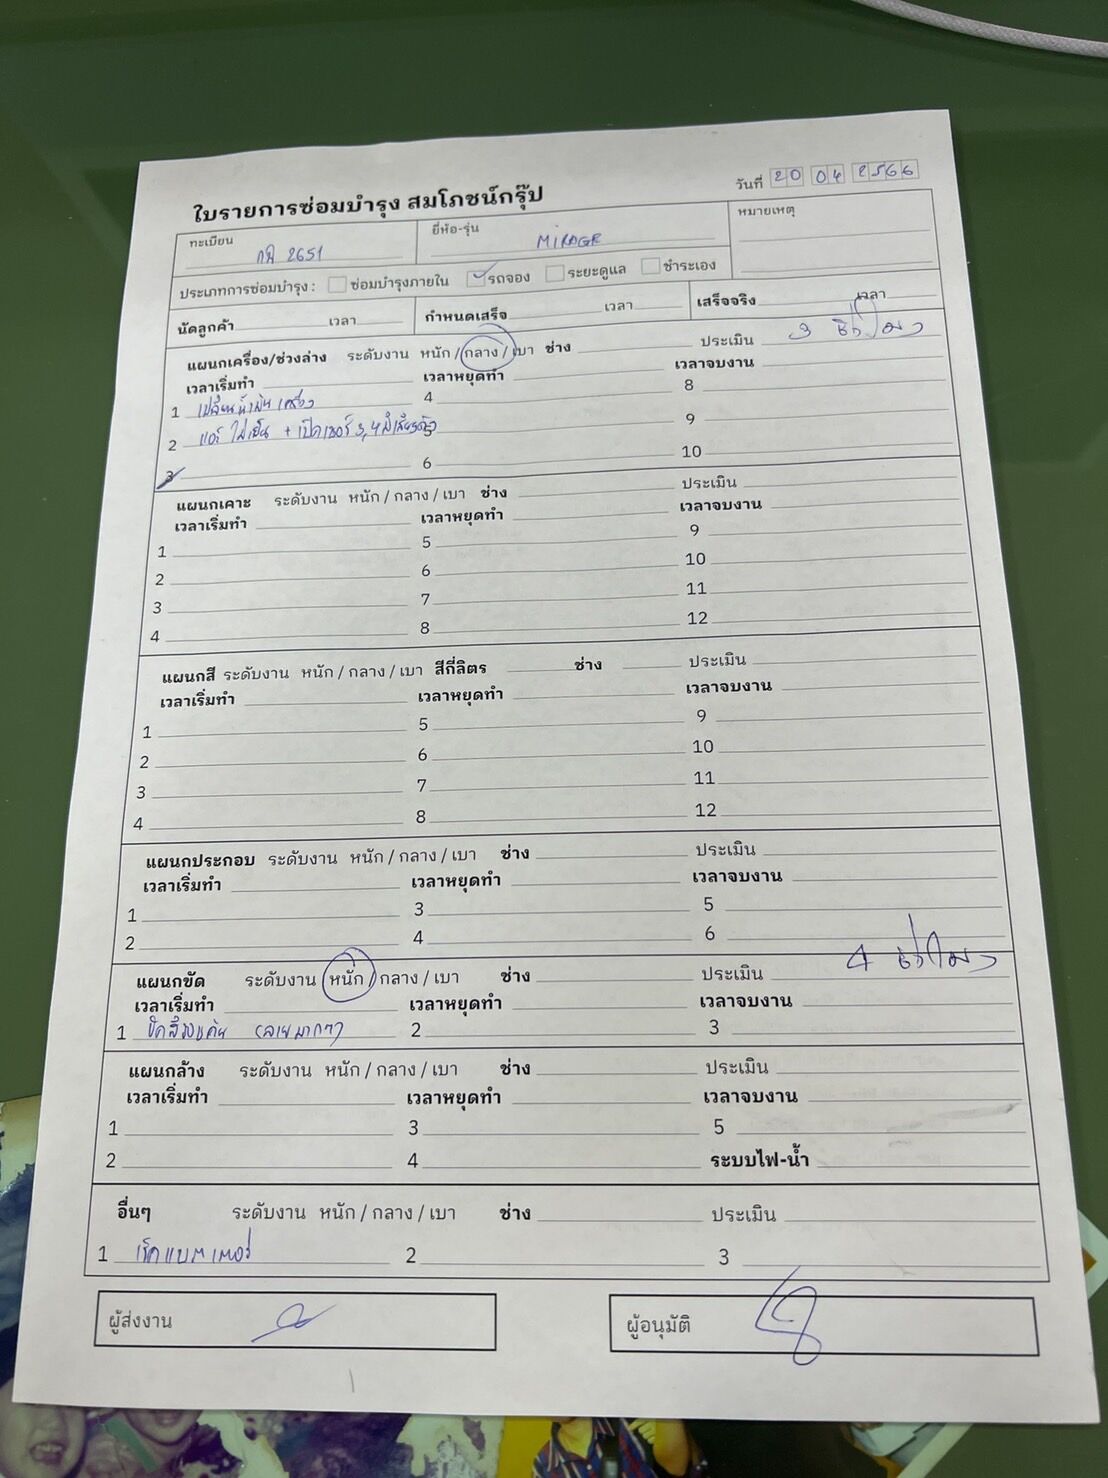 ใบรายการซ่อมบำรุง สมโภชน์กรุ๊ป
วันที่ 20 04 2566
ทะเบียน 2651 ยี่ห้อ-รุ่น MIRAGE หมายเหตุ
ประเภทการซ่อมบำรุง : ซ่อมบำรุงภายใน รถจอง ระยะดูแล ชำระเอง
นัดลูกค้า เวลา กำหนดเสร็จ เวลา เสร็จจริง เวลา
แผนกเครื่อง/ช่วงล่าง ระดับงาน หนัก / กลาง / เบา ช่าง ประเมิน 3 ชั่วโมง
เวลาเริ่มทำ เวลาหยุดทำ เวลาจบงาน
1 เปลี่ยนน้ำมันเครื่อง 4 8
2 แอร์ ไม่เย็น + เปิดเบอร์ 3,4 มีเสียงดัง 5 9
3 6 10
แผนกเคาะ ระดับงาน หนัก / กลาง / เบา ช่าง ประเมิน
เวลาเริ่มทำ เวลาหยุดทำ เวลาจบงาน
1 5 9
2 6 10
3 7 11
4 8 12
แผนกสี ระดับงาน หนัก / กลาง / เบา สีกี่ลิตร ช่าง ประเมิน
เวลาเริ่มทำ เวลาหยุดทำ เวลาจบงาน
1 5 9
2 6 10
3 7 11
4 8 12
แผนกประกอบ ระดับงาน หนัก / กลาง / เบา ช่าง ประเมิน
เวลาเริ่มทำ เวลาหยุดทำ เวลาจบงาน
1 3 5
2 4 6
แผนกขัด ระดับงาน หนัก / กลาง / เบา ช่าง ประเมิน 4 ชั่วโมง
เวลาเริ่มทำ เวลาหยุดทำ เวลาจบงาน
1 ขัดสีรอบคัน (ลายมากๆ) 2 3
แผนกล้าง ระดับงาน หนัก / กลาง / เบา ช่าง ประเมิน
เวลาเริ่มทำ เวลาหยุดทำ เวลาจบงาน
1 3 5
2 4 ระบบไฟ-น้ำ
อื่นๆ ระดับงาน หนัก / กลาง / เบา ช่าง ประเมิน
1 เช็คแบตเตอรี่ 2 3
ผู้ส่งงาน ผู้อนุมัติ